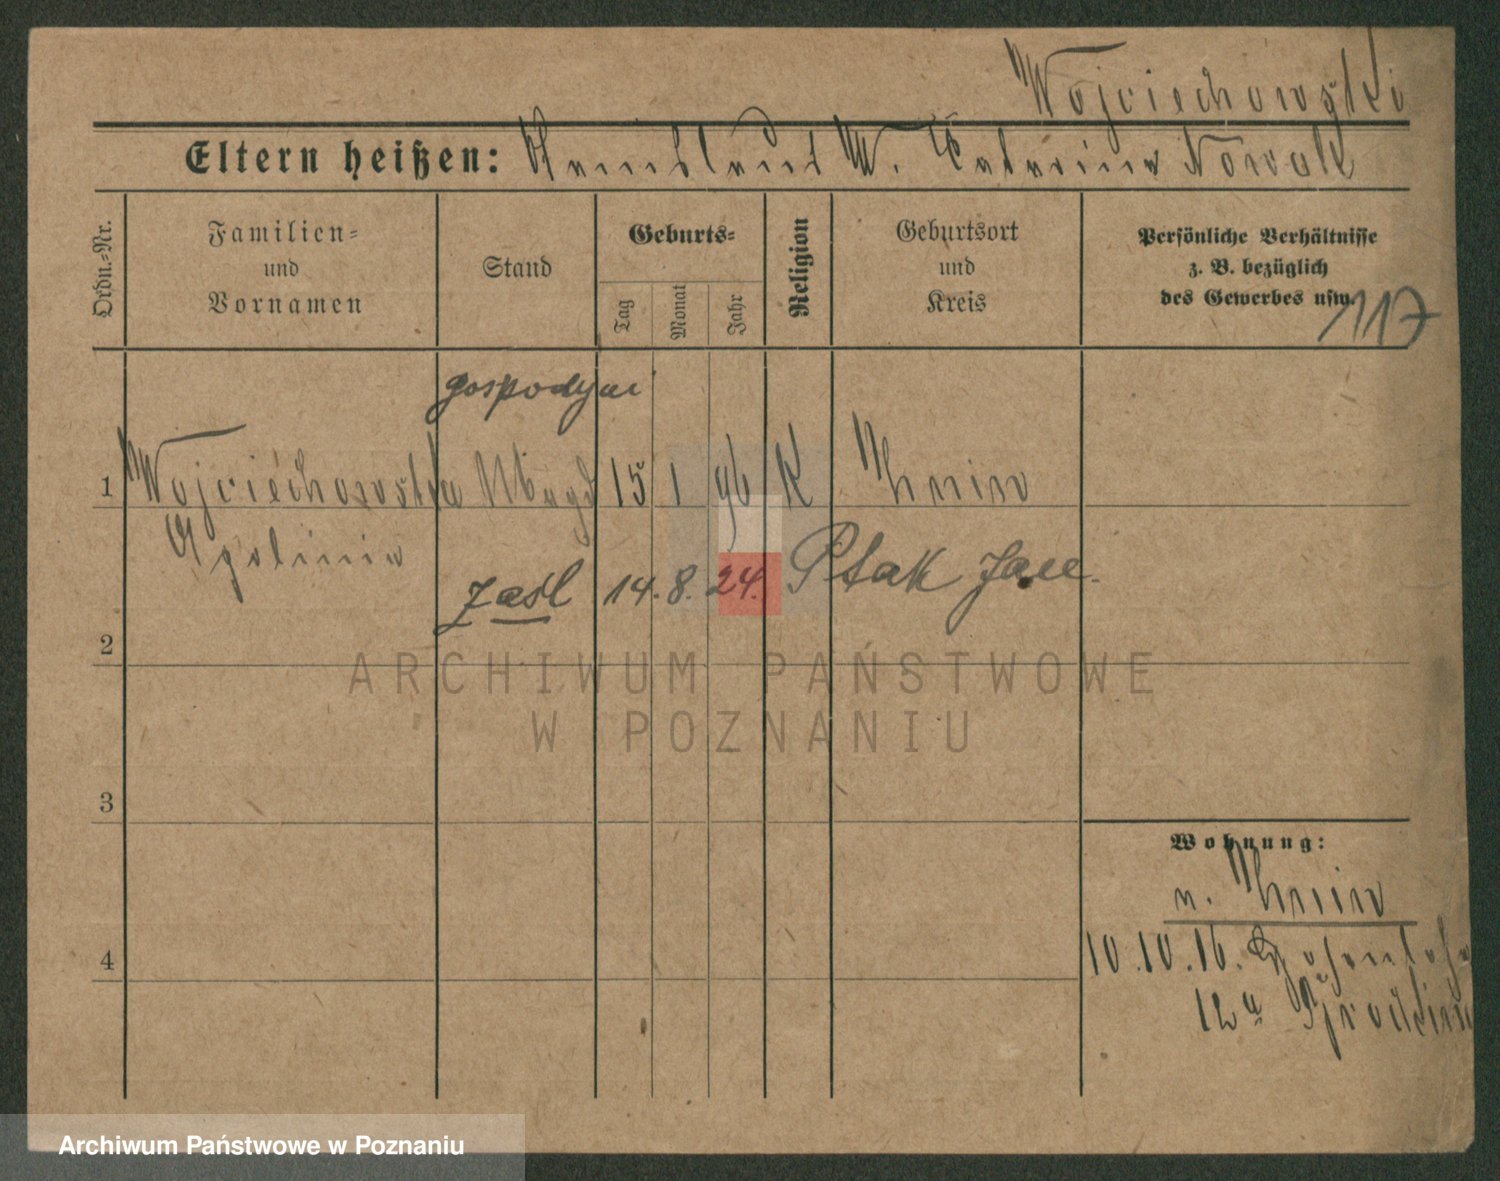 Wojciechowski
Eltern heißen: Stanislaus W. Catarina Nowak
Ordn.-Nr.
Familien-
und
Vornamen
Stand
Geburts-
Tag
Monat
Jahr
Religion
Geburtsort
und
Kreis
Persönliche Verhältnisse
z. B. bezüglich
des Gewerbes usw.
117
gospodyni
1 Wojciechowska Magd 15 1 96 K Znin
Apolinia
zaśl 14. 8. 24. Ptak Jan.
2
3
4
Wohnung:
n. Znin
10.10.16.
12a
ARCHIWUM PAŃSTWOWE
W POZNANIU
Archiwum Państwowe w Poznaniu